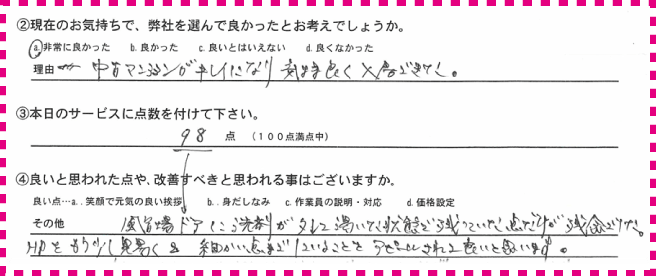 ②現在のお気持ちで、弊社を選んで良かったとお考えでしょうか。
a.非常に良かった　b.良かった　c.良いとはいえない　d.良くなかった
理由 中古マンションがキレイになり 気持良く入居できそう。
③本日のサービスに点数を付けて下さい。
98 点 （１００点満点中）
④良いと思われた点や、改善すべきと思われる事はございますか。
良い点…a..笑顔で元気の良い挨拶　b..身だしなみ　c.作業員の説明・対応　d.価格設定
その他 風呂場ドアに洗剤がタレて渇いた状態で残っていた点だけが残念でした。
HPをもう少し見易く 細かい点までしていることをアピールされて良いと思います。